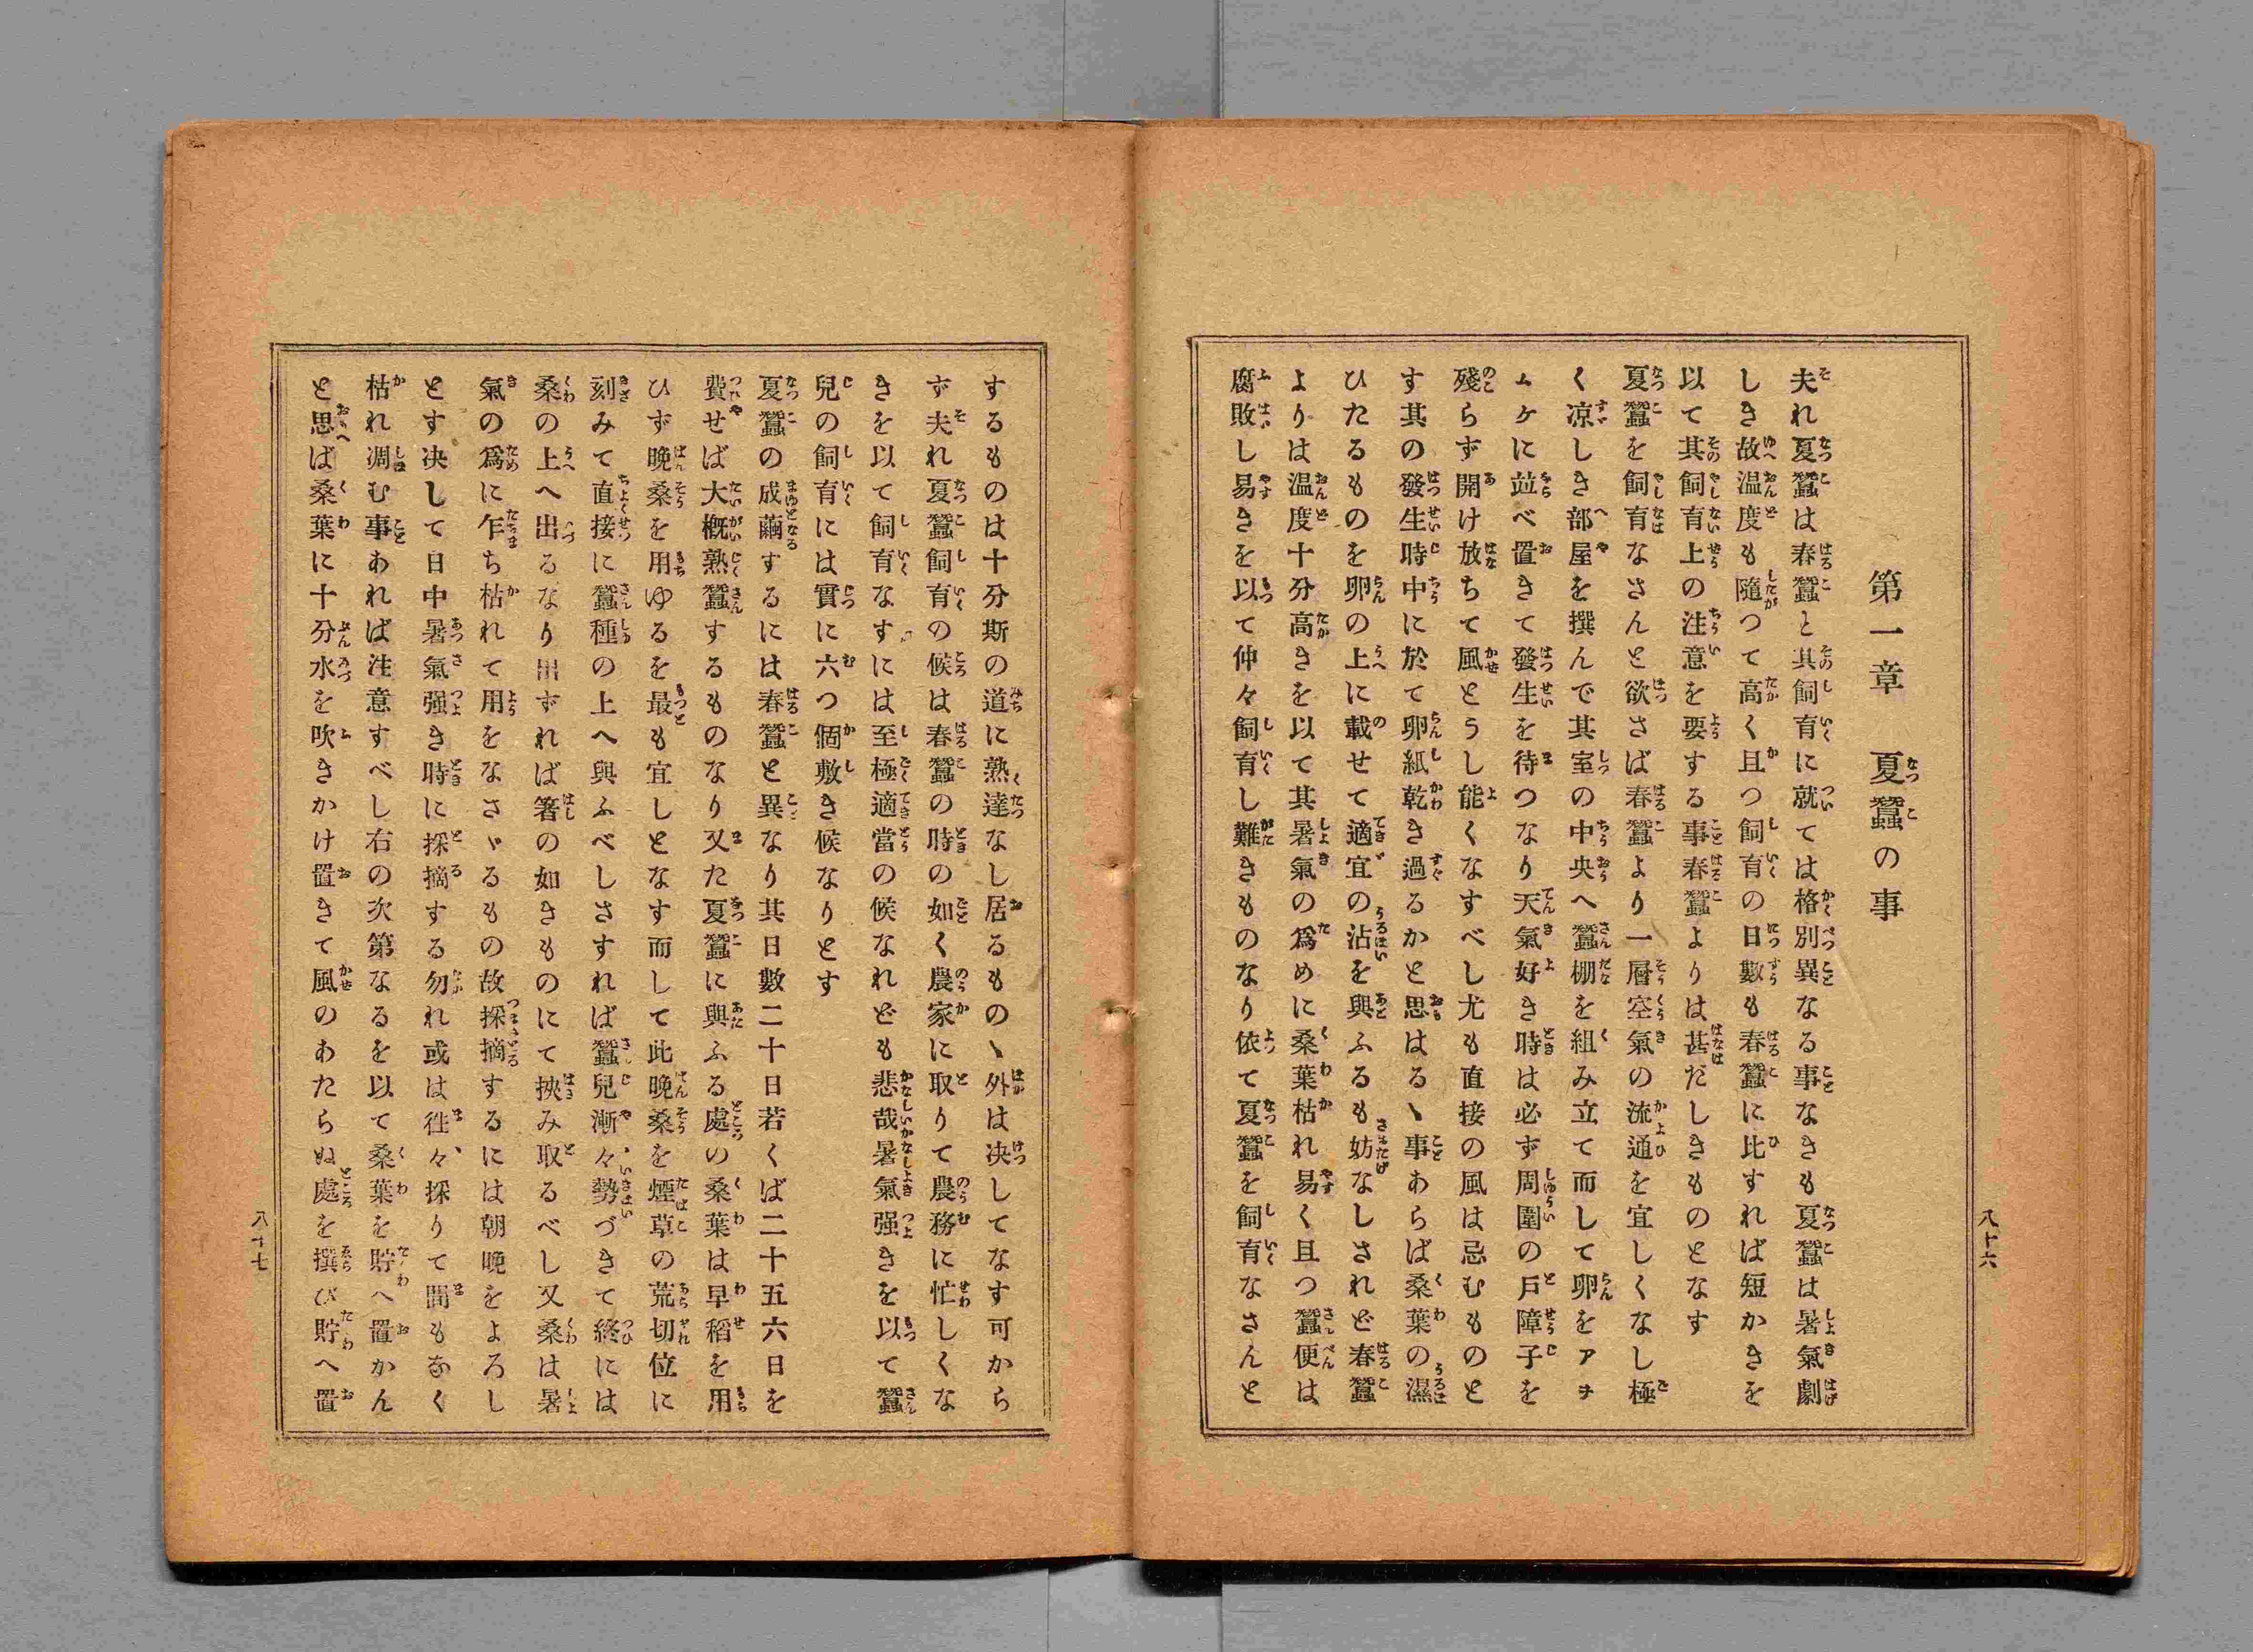 第一章　夏蠶の事
夫れ夏蠶は春蠶と其飼育に就ては格別異なる事なきも夏蠶は暑氣劇
しき故温度も隨つて高く且つ飼育の日數も春蠶に比すれば短かきを
以て其飼育上の注意を要する事春蠶よりは甚だしきものとなす
夏蠶を飼育なさんと欲さば春蠶より一層空氣の流通を宜しくなし極
く凉しき部屋を撰んで其室の中央へ蠶棚を組み立て而して卵をアヲ
ムケに竝べ置きて發生を待つなり天氣好き時は必ず周圍の戸障子を
殘らず開け放ちて風とうし能くなすべし尤も直接の風は忌むものと
す其の發生時中に於て卵紙乾き過るかと思はるヽ事あらば桑葉の濕
ひたるものを卵の上に載せて適宜の沾を與ふるも妨なしされど春蠶
よりは温度十分高きを以て其暑氣の爲めに桑葉枯れ易く且つ蠶便は
腐敗し易きを以て仲々飼育し難きものなり依て夏蠶を飼育なさんと
八十六
するものは十分斯の道に熟達なし居るものヽ外は决してなす可から
ず夫れ夏蠶飼育の候は春蠶の時の如く農家に取りて農務に忙しくな
きを以て飼育なすには至極適當の候なれども悲哉暑氣强きを以て蠶
兒の飼育には實に六つ個敷き候なりとす
夏蠶の成繭するには春蠶と異なり其日數二十日若くば二十五六日を
費せば大概熟蠶するものなり又た夏蠶に與ふる處の桑葉は早稻を用
ひず晩桑を用ゆるを最も宜しとなす而して此晩桑を煙草の荒切位に
刻みて直接に蠶種の上へ與ふべしさすれば蠶兒漸々勢づきて終には
桑の上へ出るなり出ずれば箸の如きものにて挾み取るべし又桑は暑
氣の爲に乍ち枯れて用をなさヾるもの故採摘するには朝晩をよろし
とす决して日中暑氣强き時に採摘する勿れ或は徃々採りて間もなく
枯れ凋む事あれば注意すべし右の次第なるを以て桑葉を貯へ置かん
と思へば桑葉に十分水を吹きかけ置きて風のあたらぬ處を撰び貯へ置
八十七